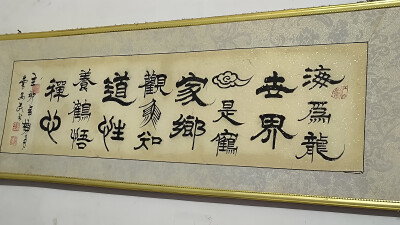 海為龍
世界
云是鶴
家鄉
觀知
道性
養鶴悟
禪心